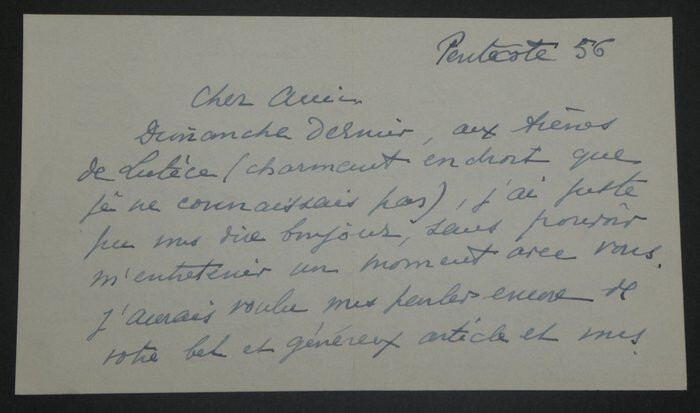 Pentecôte 56
Cher Ami
Dimanche dernier, aux arènes
de Lutèce (charmant endroit que
je ne connaissais pas), j'ai juste
pu vous dire bonjour, sans pouvoir
m'entretenir un moment avec vous.
J'aurais voulu vous parler encore de
votre bel et généreux article et vous